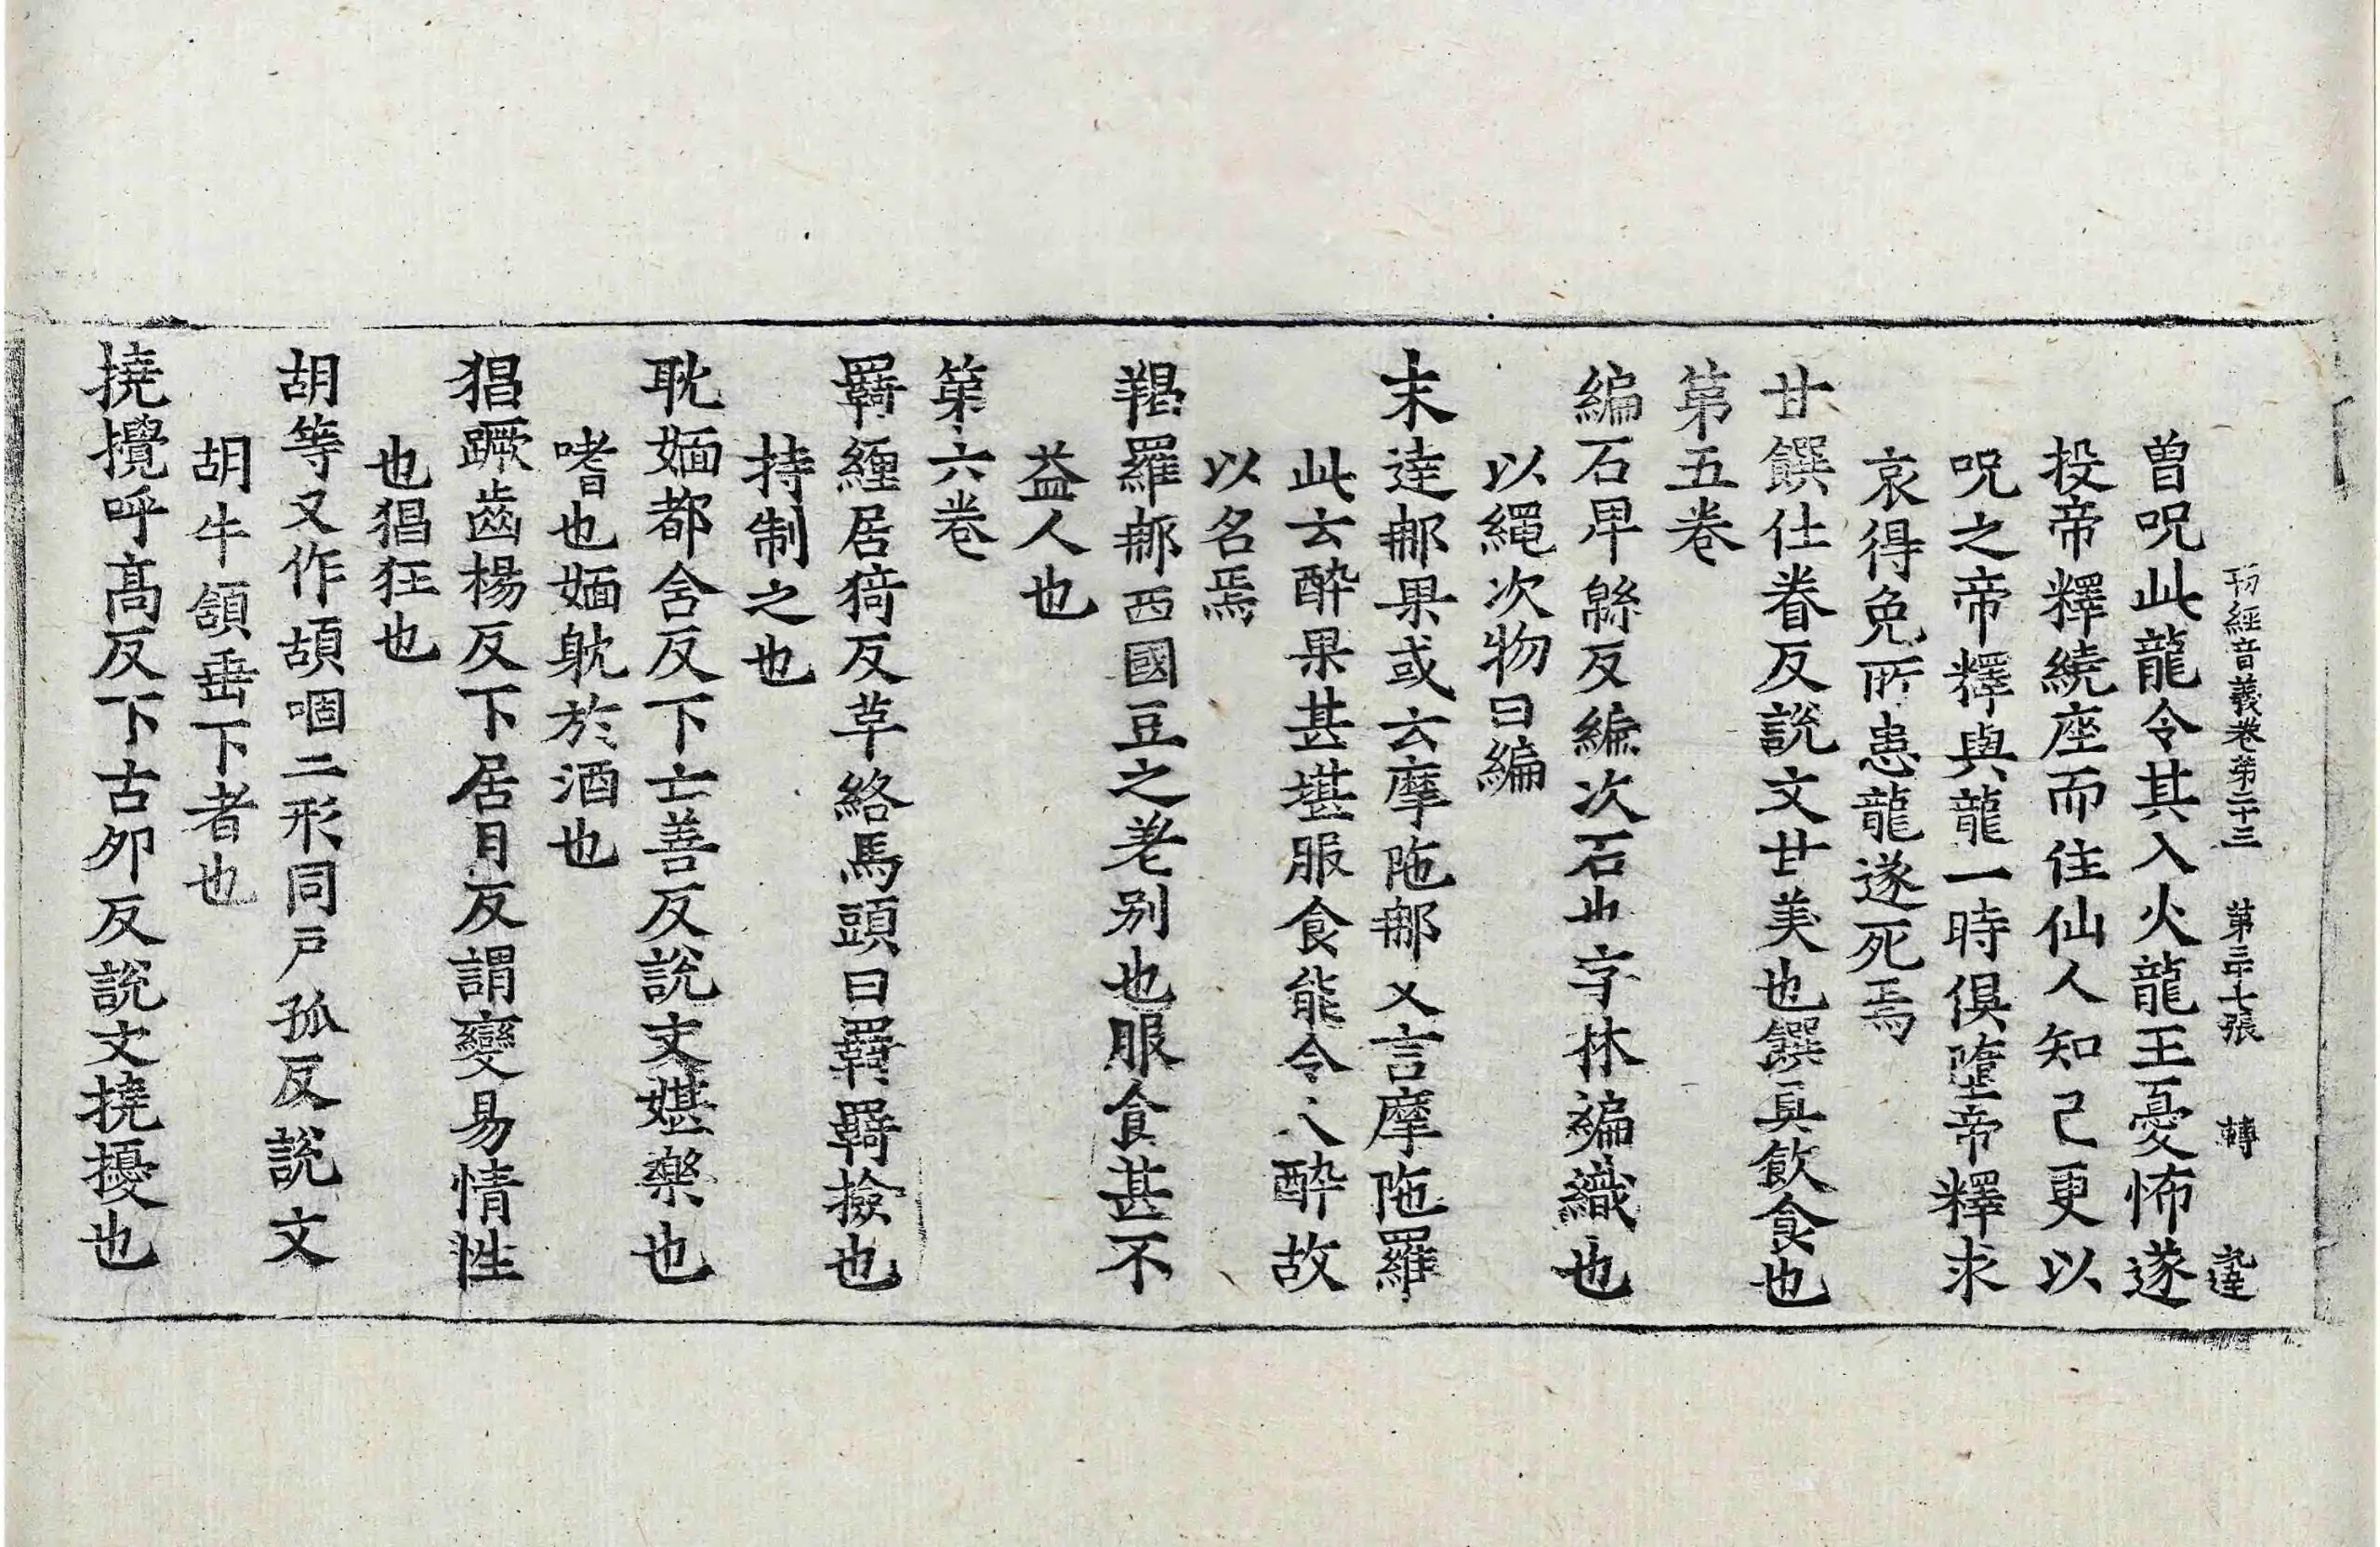 刊經音義卷第二十三 第三十七張 轉
曾呪此龍令其入火龍王憂怖遂
投帝釋繞座而住仙人知己更以
呪之帝釋與龍一時俱墮帝釋求
哀得免所患龍遂死焉
甘饌仕眷反說文甘美也饌具飲食也
第五卷
編石卑緜反編次石也字林編織也
以繩次物曰編
末達那果或云摩陁那又言摩陁羅
此云醉果甚堪服食能令人醉故
以名焉
羯羅那西國豆之差别也服食甚不
益人也
第六卷
羇纒居猗反草絡馬頭曰羇羇撿也
持制之也
耽媔都含反下亡善反說文媅樂也
嗜也媔躭於酒也
猖蹶齒楊反下居月反謂變易情性
也猖狂也
胡等又作頡咽二形同戸孤反說文
胡牛頷垂下者也
撓攪呼髙反下古夘反說文撓擾也